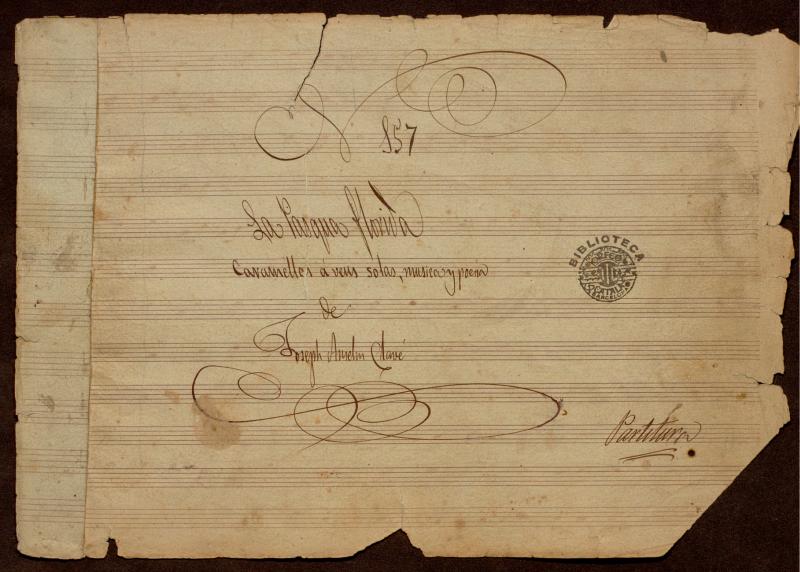 N
857
La Pasqua florida
Caramelles á veus solas, musica y poesia
de
Joseph Anselm Clavé
BIBLIOTECA
ORFEÓ
CATALÀ
BARCELONA
Partitura